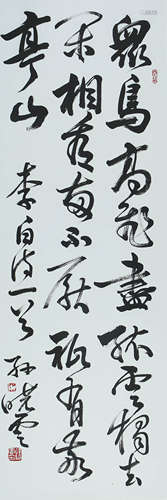 眾鳥高飛盡孤雲獨去
閑相看兩不厭祇有敬
亭山 李白詩一首 孫曉雲